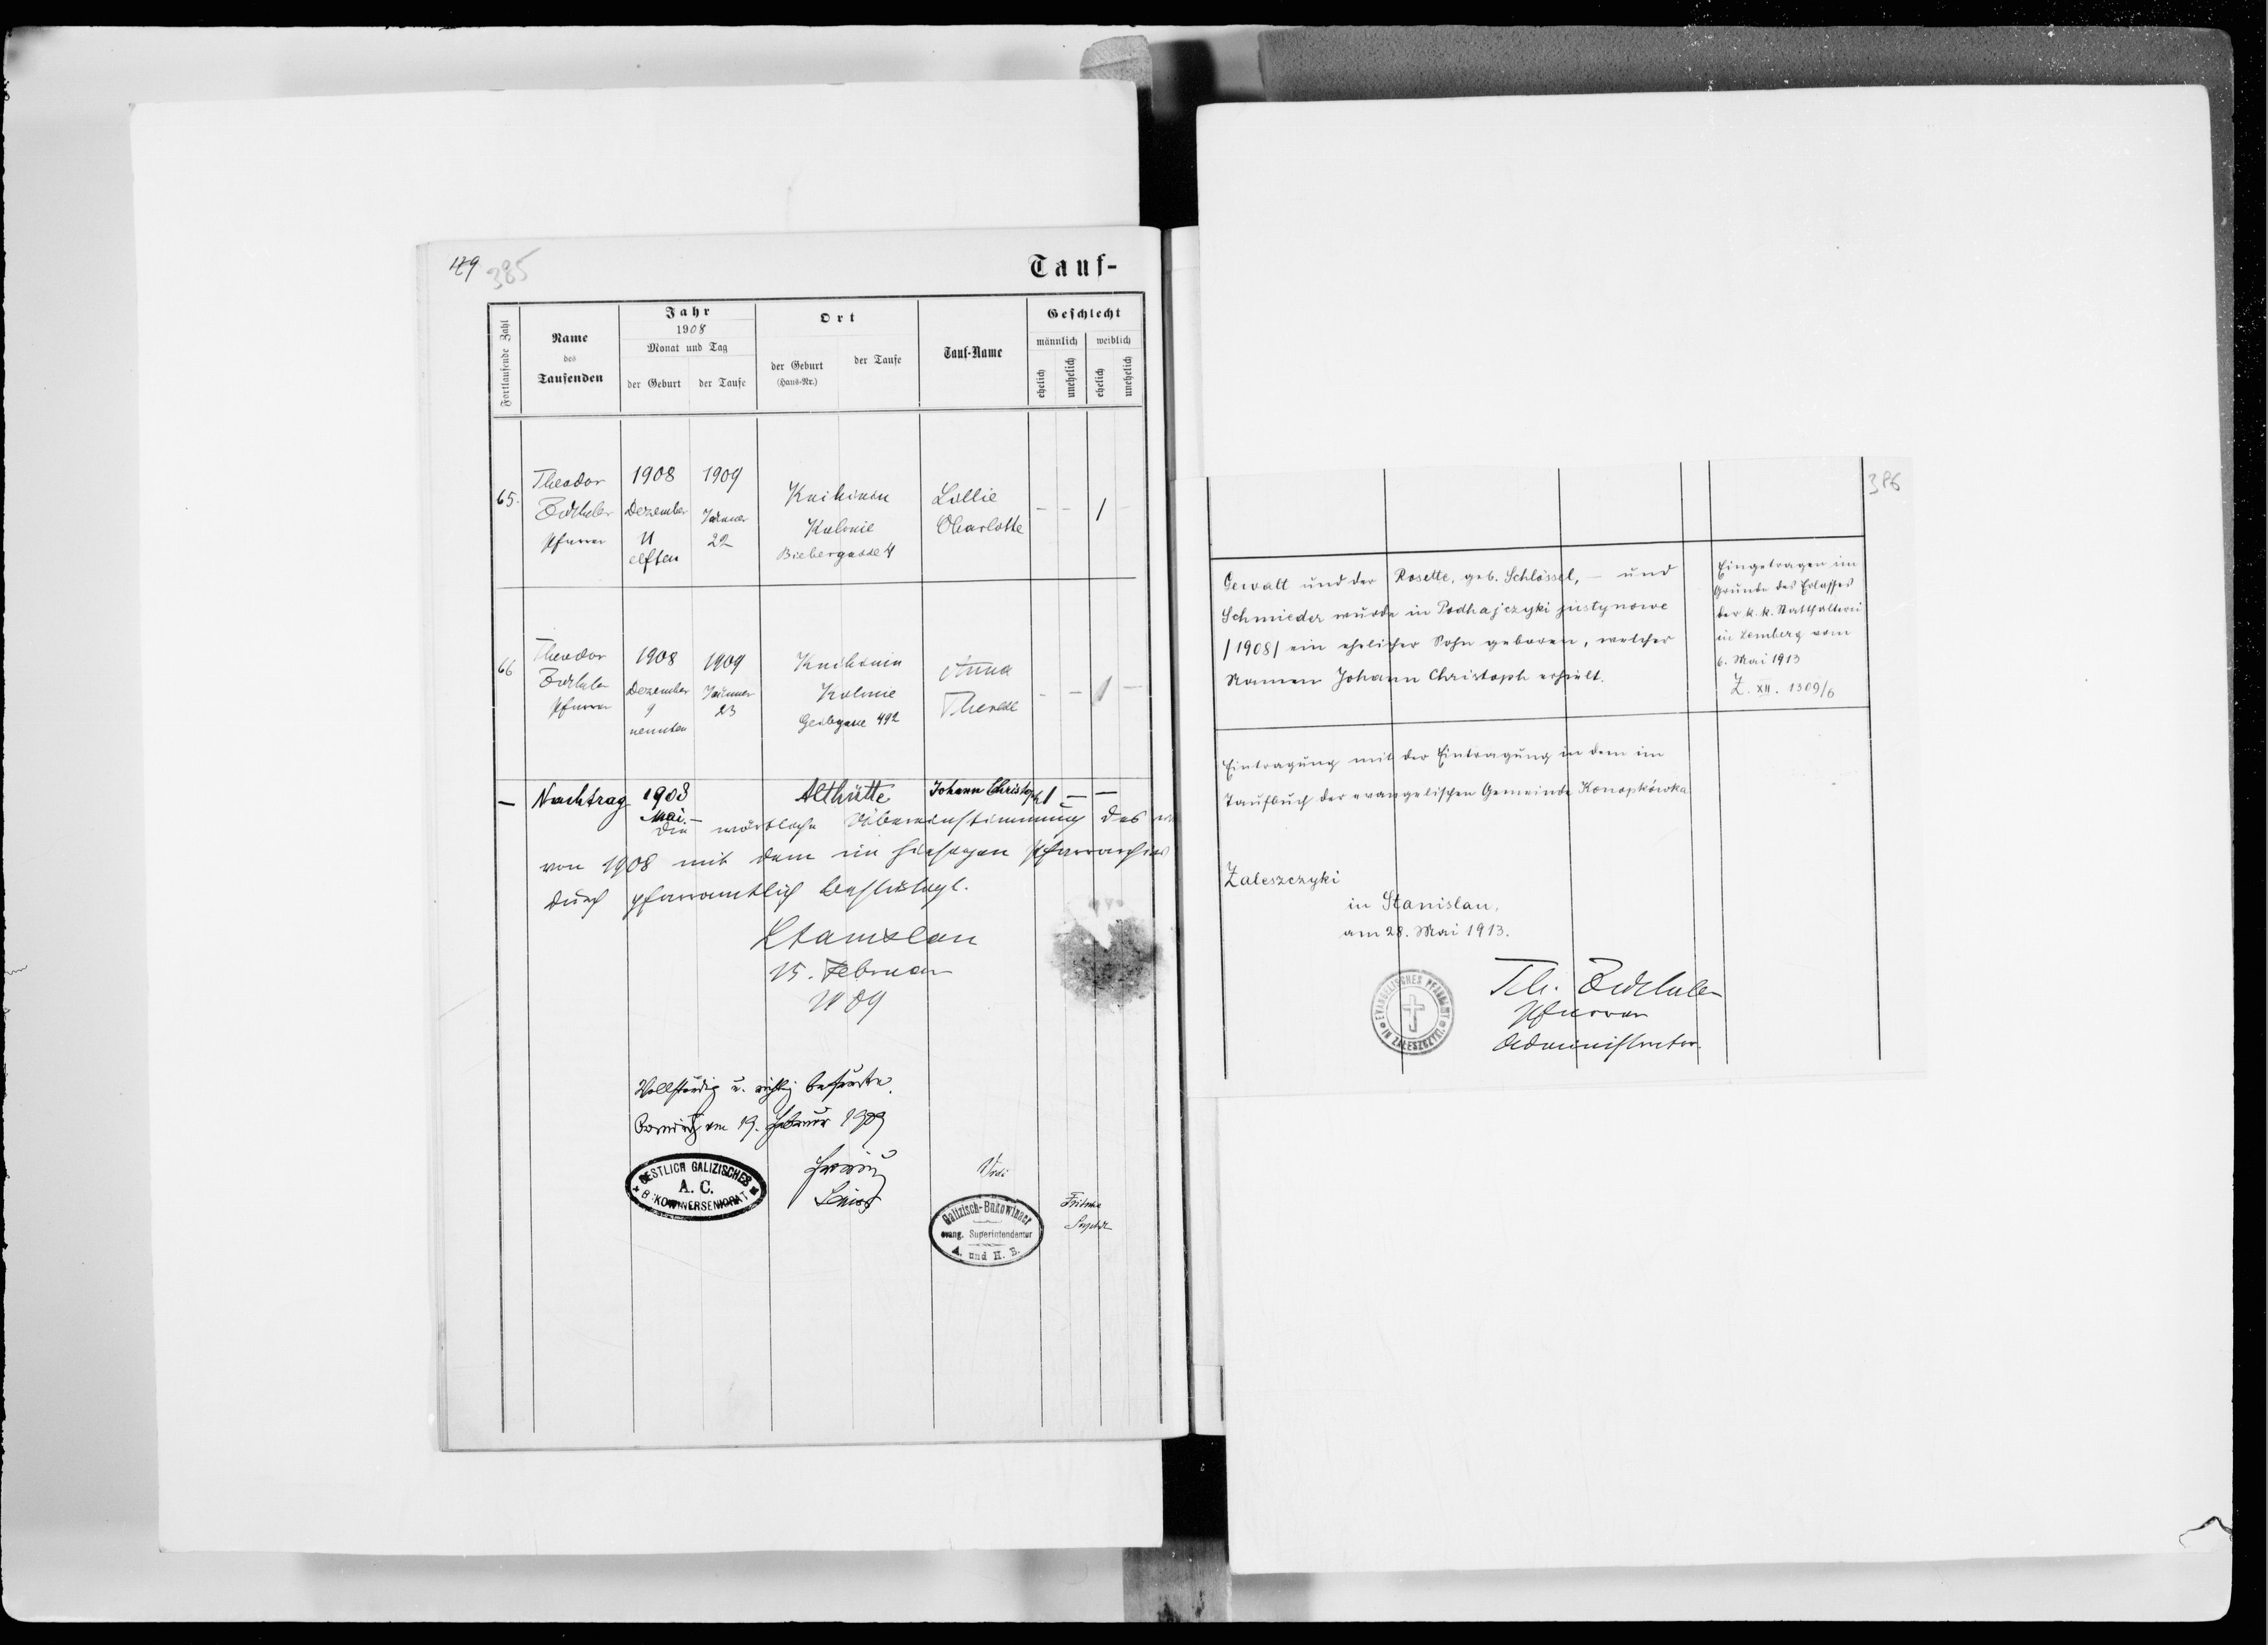 179 385
Tauf-
Fortlaufende Zahl
Name
des
Taufenden
Jahr
1908
Monat und Tag
der Geburt
der Taufe
Ort
der Geburt
(Haus-Nr.)
der Taufe
Tauf-Name
Geschlecht
männlich
weiblich
ehelich
unehelich
ehelich
unehelich
65.
Theodor
Zöckler
Pfarrer
1908
Dezember
11
elften
1909
Jänner
22
Knihinin
Kolonie
Biebergasse 4
Lillie
Charlotte
- - 1 -
66
Theodor
Zöckler
Pfarrer
1908
Dezember
9
neunten
1909
Jänner
23
Knihinin
Kolonie
492
Anna
Therese
- - 1 -
- Nachtrag 1908 Althütte Johann Christoph 1 - -
Mai. -
Die wörtliche Übereinstimmung des
von 1908 mit dem im hiesigen Pfarrarchiv
pfarramtlich bestätigt.
Stanislau
15. Februar
1909
Vollständig u. richtig befunden.
am 19. Februar 1909
Senior
Vidi
Fritsche
OESTLICH GALIZISCHES
A. C.
BUKOWINERSENIORAT
Galizisch-Bukowinaer
evang. Superintendentur
A. und H. B.
386
Gewalt und der Rosette, geb. Schlössel, - und
Schmieder wurde in Podhajczyki justynowe
/1908/ ein ehelicher Sohn geboren, welcher
Namen Johann Christoph erhielt.
Eingetragen im
Grunde des Erlasses
der k. k. Statthalterei
in Lemberg vom
6. Mai 1913
Z. XII. 1309/6
Eintragung mit der Eintragung in dem im
Taufbuch der evangelischen Gemeinde Konopkówka
Zaleszczyki
in Stanislau,
am 28. Mai 1913.
EVANGELISCHES PFARRAMT
IN ZALESZCZYKI
Th. Zöckler
Pfarrer
Administrator.